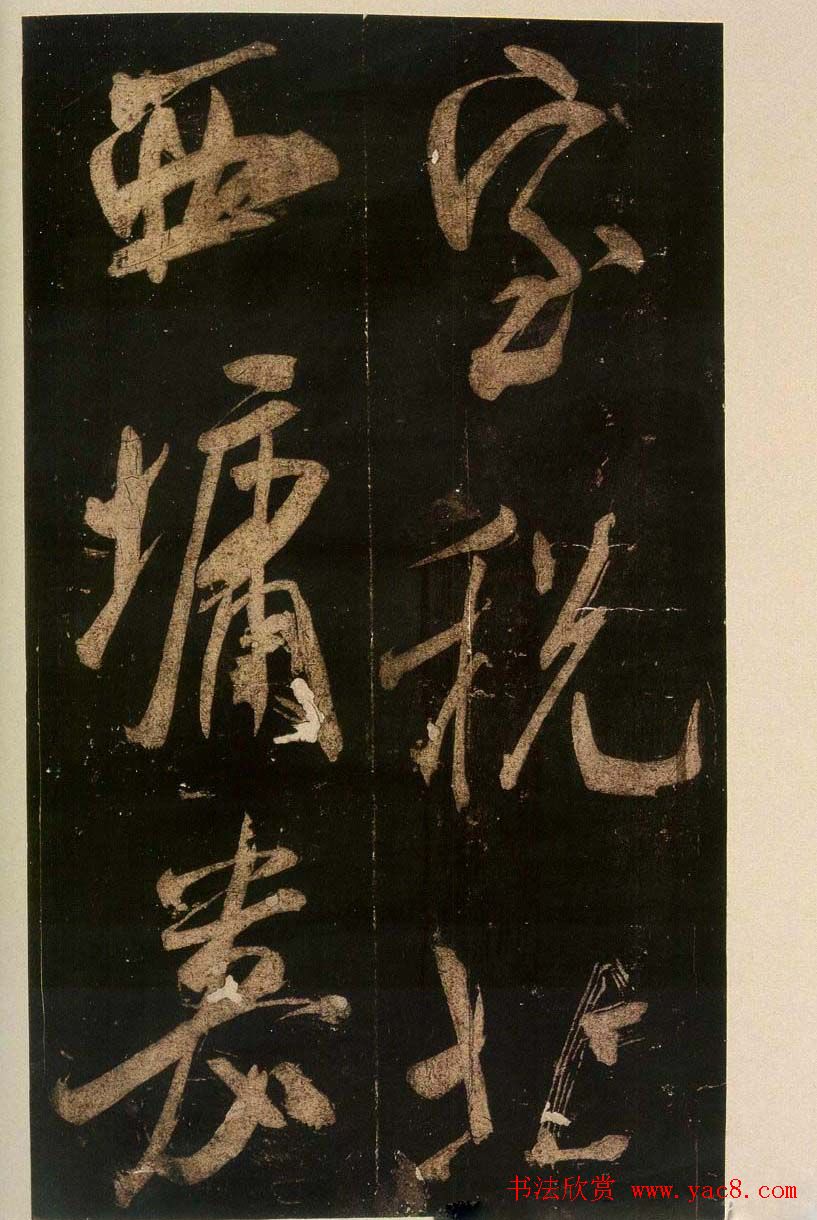 室税北
西墉裹
书法欣赏 www.yac8.com